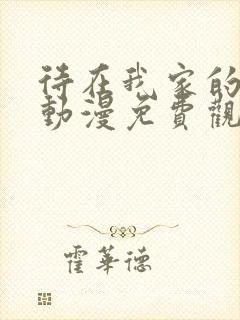 待在我家的
動漫免費觀
霍華德